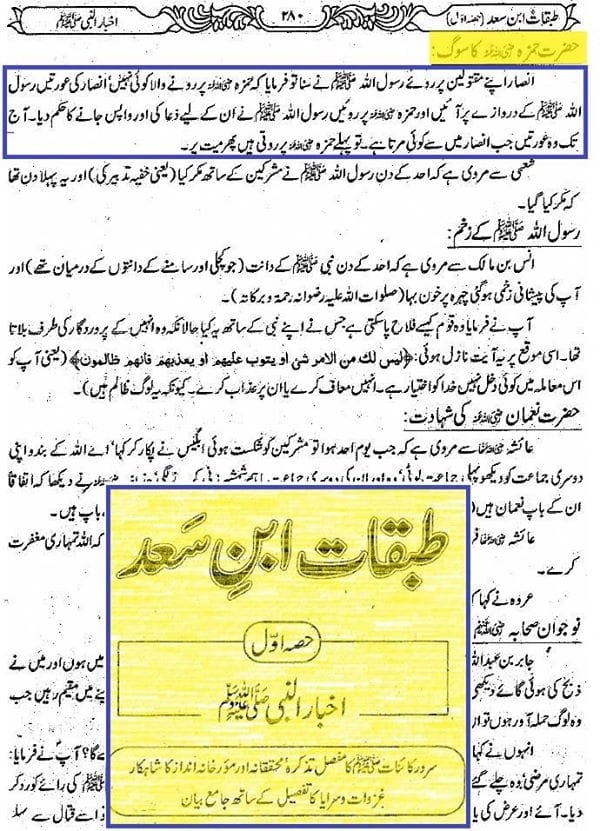 طبقات ابن سعد (حصہ اول)
۲۸۰
اخبار النبی ﷺ
حضرت حمزہ رضی اللہ عنہ کا سوگ:
انصار اپنے مقتولین پر روئے رسول اللہ ﷺ نے سنا تو فرمایا کہ حمزہ پر رونے والا کوئی نہیں، انصار کی عورتیں رسول
اللہ ﷺ کے دروازے پر آئیں اور حمزہ پر روئیں رسول اللہ ﷺ نے ان کے لیے دعا کی اور واپس جانے کا حکم دیا۔ آج
تک وہ عورتیں جب انصار میں سے کوئی مرتا ہے۔ تو پہلے حمزہ رضی اللہ عنہ پر روتی ہیں پھر میت پر۔
شعبی سے مروی ہے کہ احد کے دن رسول اللہ ﷺ نے مشرکین کے ساتھ مکر کیا (یعنی خفیہ تدبیر کی) اور یہ پہلا دن تھا
کہ مکر کیا گیا۔
رسول اللہ ﷺ کے زخم:
انس بن مالک سے مروی ہے کہ احد کے دن نبی ﷺ کے دانت (جو کچلی اور سامنے کے دانتوں کے درمیان تھے) اور
آپ کی پیشانی زخمی ہوگئی چہرہ پر خون بہا (صلوات اللہ علیہ رضوانہ رحمۃ و برکاتہ)۔
آپ نے فرمایا وہ قوم کیسے فلاح پاسکتی ہے جس نے اپنے نبی کے ساتھ یہ کیا حالانکہ وہ انہیں کے پروردگار کی طرف بلاتا
تھا۔ اسی موقع پر یہ آیت نازل ہوئی: ﴿لیس لك من الامر شئ او يتوب عليهم او يعذبهم فانهم ظالمون﴾ (یعنی آپ کو
اس معاملہ میں کوئی دخل نہیں خدا کو اختیار ہے۔ انہیں معاف کرے یا ان پر عذاب کرے۔ کیونکہ یہ لوگ ظالم ہیں)۔
حضرت نعمان رضی اللہ عنہ کی شہادت:
عائشہ رضی اللہ عنہا سے مروی ہے کہ جب یوم احد ہوا تو مشرکین کو شکست ہوئی ابلیس نے پکار کر کہا، اے اللہ کے بندو اپنی
دوسری جماعت کو دیکھو پہلی جماعت لوٹی
نے دیکھا کہ اتفاقاً
ان کے باپ نعمان ہیں
باپ ہیں۔
عائشہ
کہ اللہ تمہاری مغفرت
کرے۔
عروہ نے کہا
نوجوان صحابہ
جابر بن عبداللہ
میں ہوں اور میں نے
ذبح کی ہوئی گائے دیکھی
نے میں مقیم رہیں جب
وہ لوگ حملہ آور ہوں تو
انہوں نے کہا
گا؟ آپ نے فرمایا:
تمہاری مرضی وہ چلے گئے
کی رائے کو رد کر
دیا۔ آئے اور عرض کی
سے قتال سے پہلے
طبقات ابن سعد
حصہ اول
اخبار النبی ﷺ
سرور کائنات ﷺ کا مفصل تذکرہ محققانہ اور مؤرخانہ انداز کا شاہکار
غزوات و سرایا کا تفصیل کے ساتھ جامع بیان